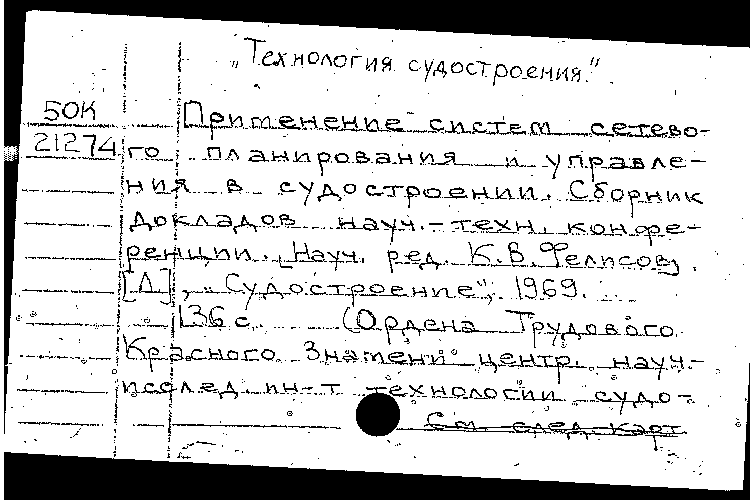 „Технология судостроения."
50К
21274
Применение систем сетево-
го планирования и управле-
ния в судостроении. Сборник
докладов науч.-техн. конфе-
ренции. [Науч. ред. К.В. Фелисов].
[Л], „Судостроение", 1969.
136 с. (Ордена Трудового
Красного Знамени центр. науч.-
исслед. ин-т технологии судо-
См след карт